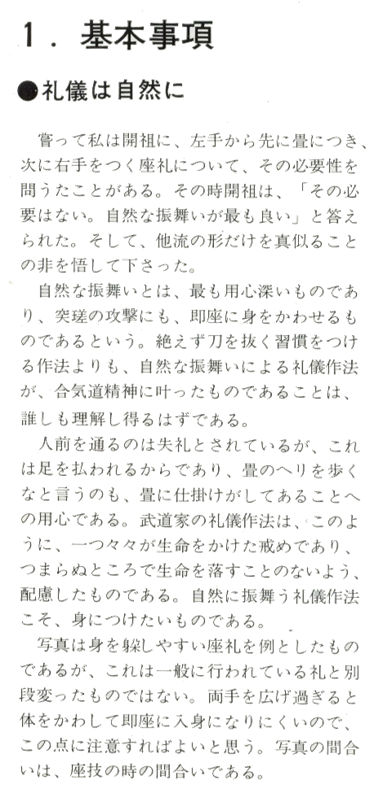 1．基本事項
●礼儀は自然に
嘗って私は開祖に、左手から先に畳につき、
次に右手をつく座礼について、その必要性を
問うたことがある。その時開祖は、「その必
要はない。自然な振舞いが最も良い」と答え
られた。そして、他流の形だけを真似ること
の非を悟して下さった。
自然な振舞いとは、最も用心深いものであ
り、突瑳の攻撃にも、即座に身をかわせるも
のであるという。絶えず刀を抜く習慣をつけ
る作法よりも、自然な振舞いによる礼儀作法
が、合気道精神に叶ったものであることは、
誰しも理解し得るはずである。
人前を通るのは失礼とされているが、これ
は足を払われるからであり、畳のヘリを歩く
なと言うのも、畳に仕掛けがしてあることへ
の用心である。武道家の礼儀作法は、このよ
うに、一つ々々が生命をかけた戒めであり、
つまらぬところで生命を落すことのないよう、
配慮したものである。自然に振舞う礼儀作法
こそ、身につけたいものである。
写真は身を躱しやすい座礼を例としたもの
であるが、これは一般に行われている礼と別
段変ったものではない。両手を広げ過ぎると
体をかわして即座に入身になりにくいので、
この点に注意すればよいと思う。写真の間合
いは、座技の時の間合いである。